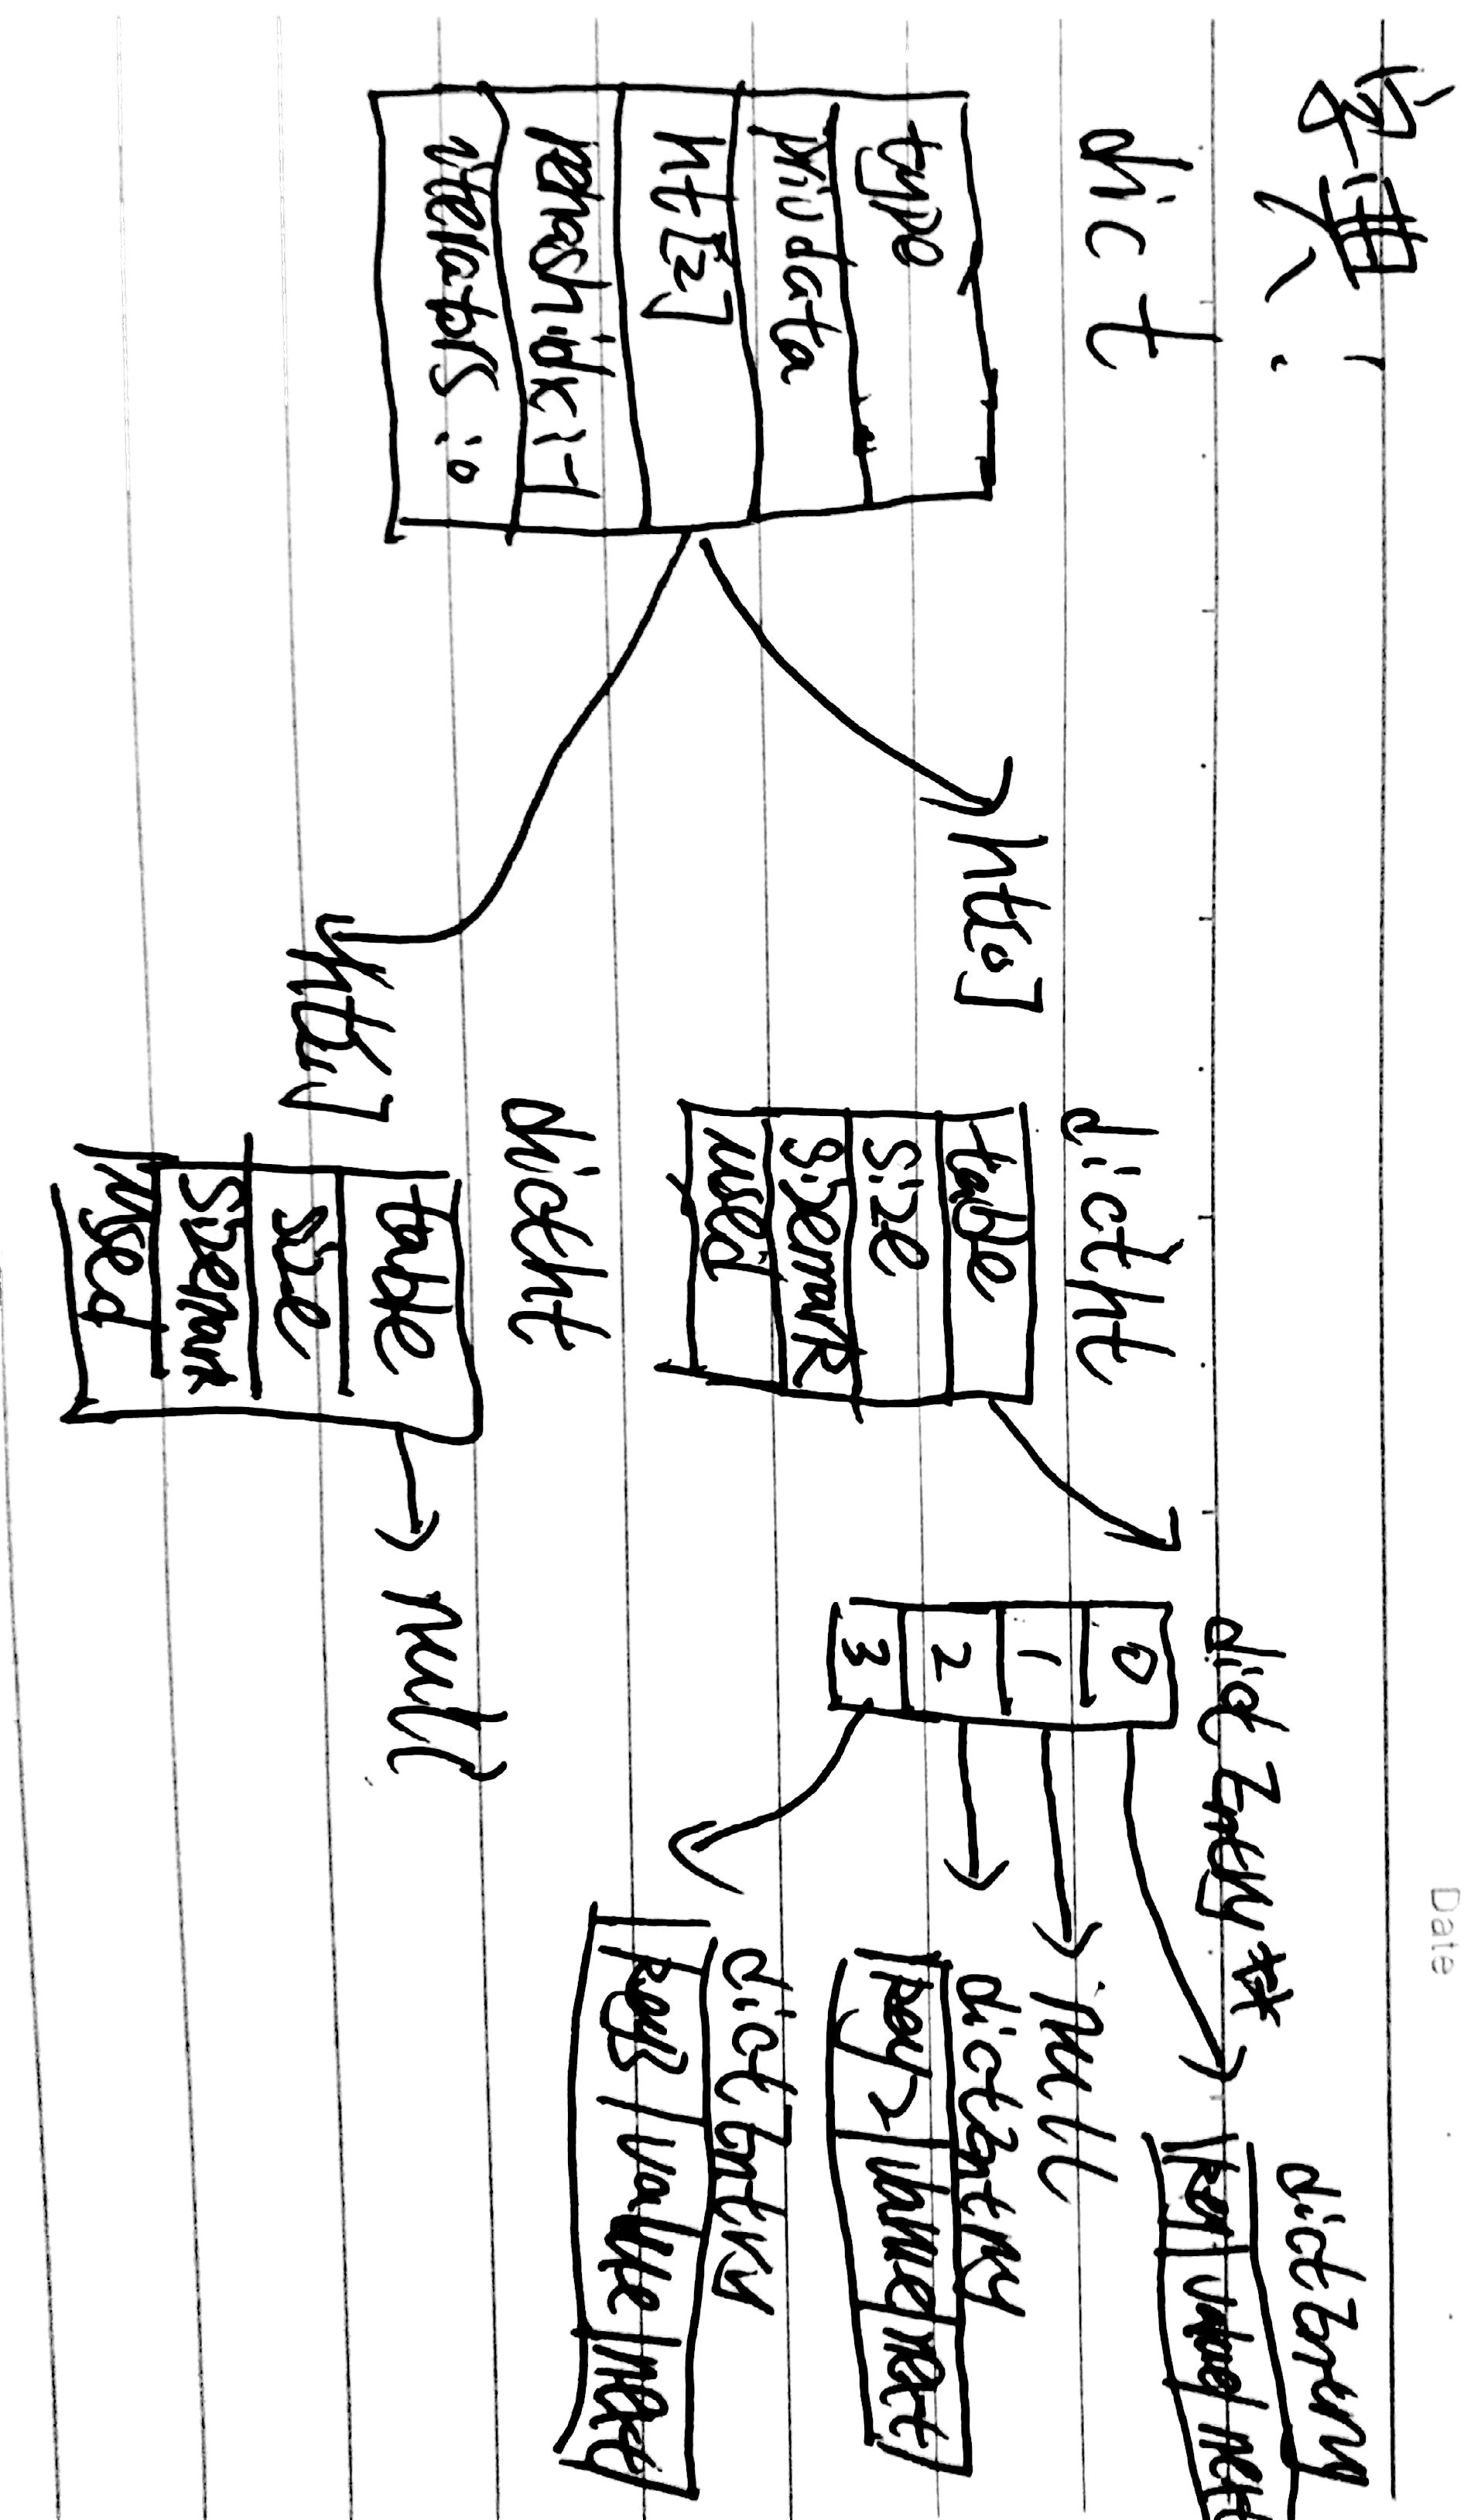 Date
字典:
dict
type
privdata
ht[2]
rehashidx:-1
iterators:0
ht[0]
ht[1]
dictht
table
size
sizemark
used
dictht
table
size
sizemark
used
null
dictEntry**
0
1
2
3
dictEntry
key value next
null
dictEntry
key2 value next
dictEntry
key3 value next